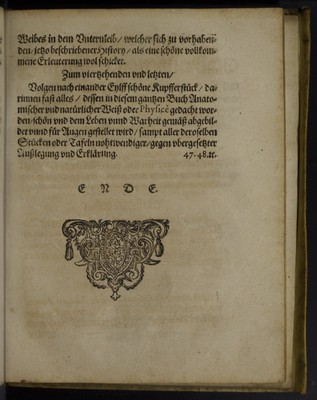 Weibes in dem Vnternleib/ welcher sich zu vorhaben-
den/ jetzo beschriebener History/ als eine schöne vollkom-
mene Erleuterung wol schicket.
Zum viertzehenden vnd letzten/
Volgen nach einander Eylff schöne Kupfferstück/ da-
rinnen fast alles/ dessen in diesem gantzen Buch Anato-
mischer vnd natürlicher Weiß oder Physicè gedacht wor-
den/ schön vnd dem Leben vnnd Warheit gemäß abgebil-
det vnnd für Augen gestellet wird/ sampt aller deroselben
Stücken oder Tafeln nohtwendiger/ gegen vbergesetzter
Außlegung vnd Erklärung. 47.48.rc.
E N D E.